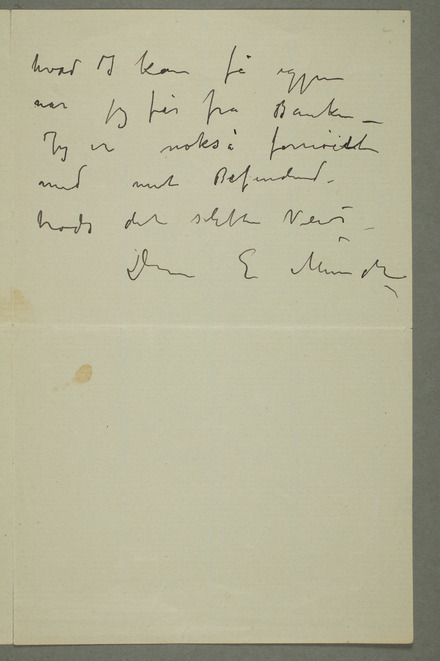 hvad I kan få igjen
når jeg får fra Banken –
Jeg er nokså fornøiet
med mit Befindend –
trods det slette Veir –
Deres E Munch